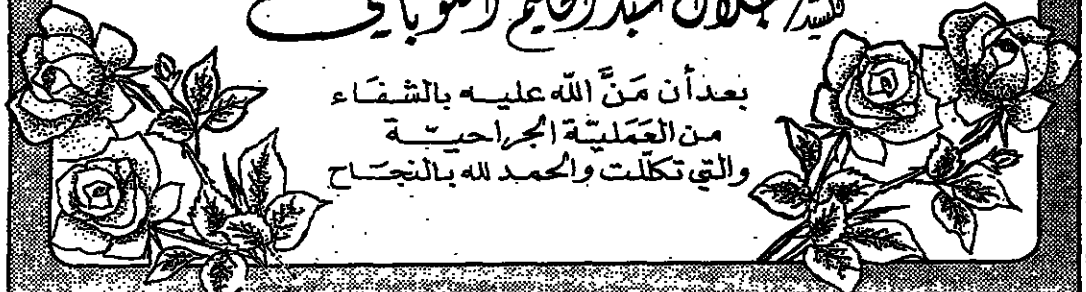 للسيد/ جلال عبد الحليم
بعد أن مَنَّ اللّه عليه بالشفاء
من العَمَليّة الجراحيّة
والتي تكلّلت والحمد لله بالنجاح